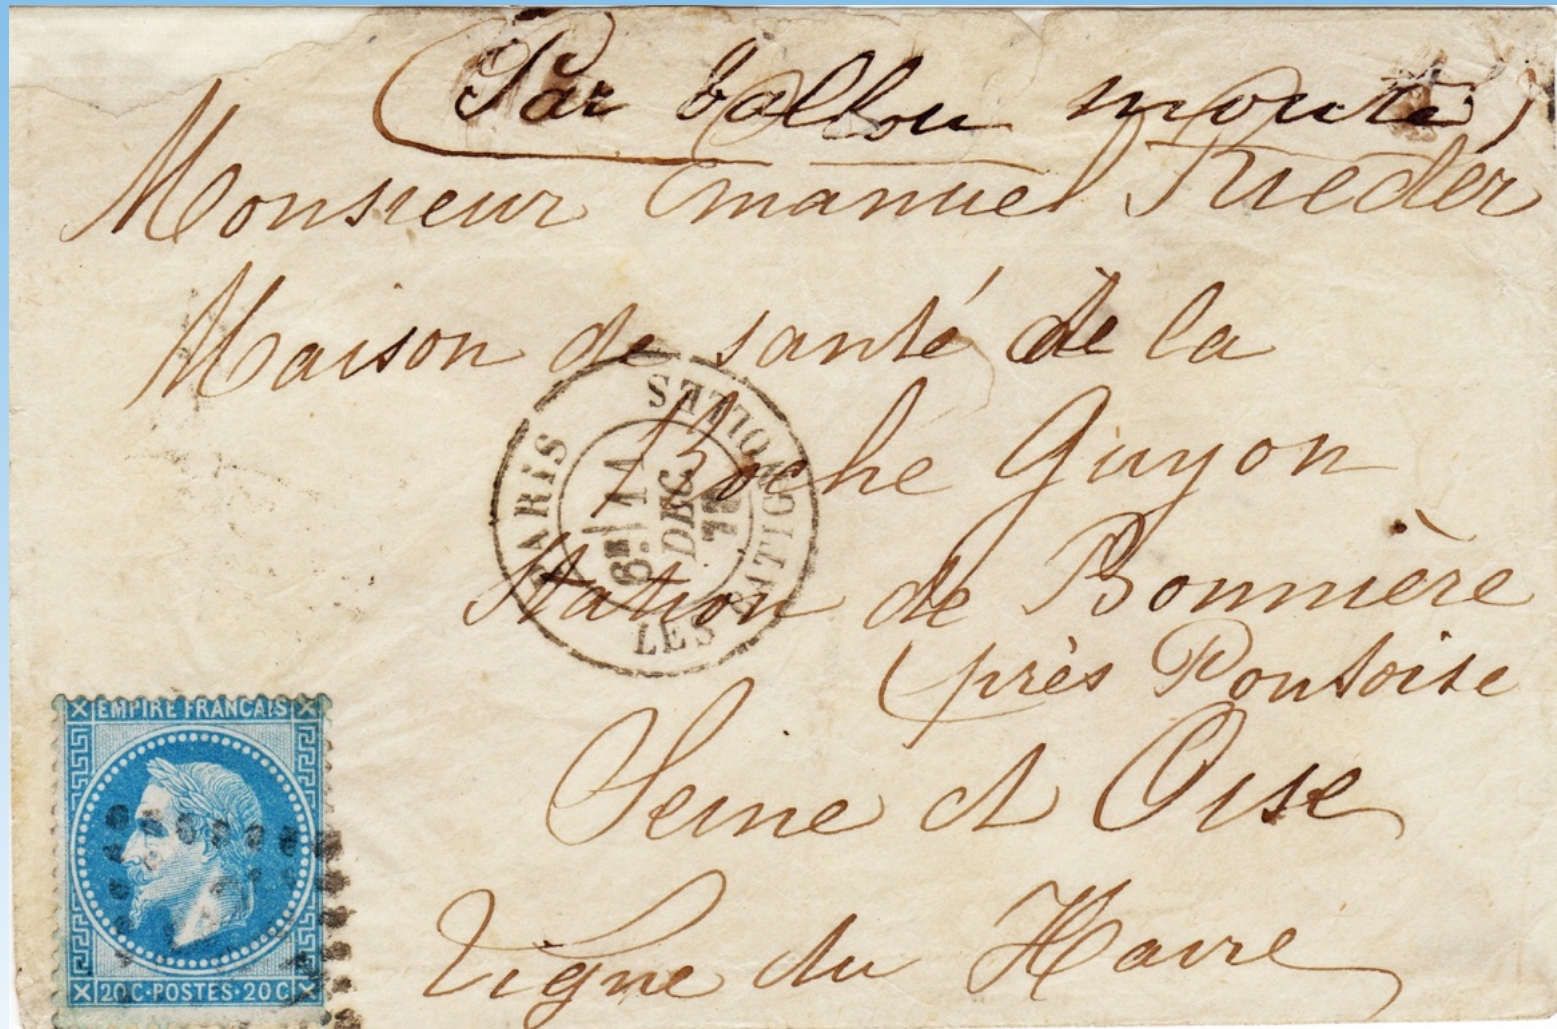 (Par ballon monté)
Monsieur Emanuel Rieder
Maison de santé de la
Roche Guyon
Station de Bonnière
(près Pontoise
Seine et Oise
Ligne du Havre
PARIS
LES BATIGNOLLES
6E 11
DEC.
EMPIRE FRANCAIS
20C·POSTES·20C